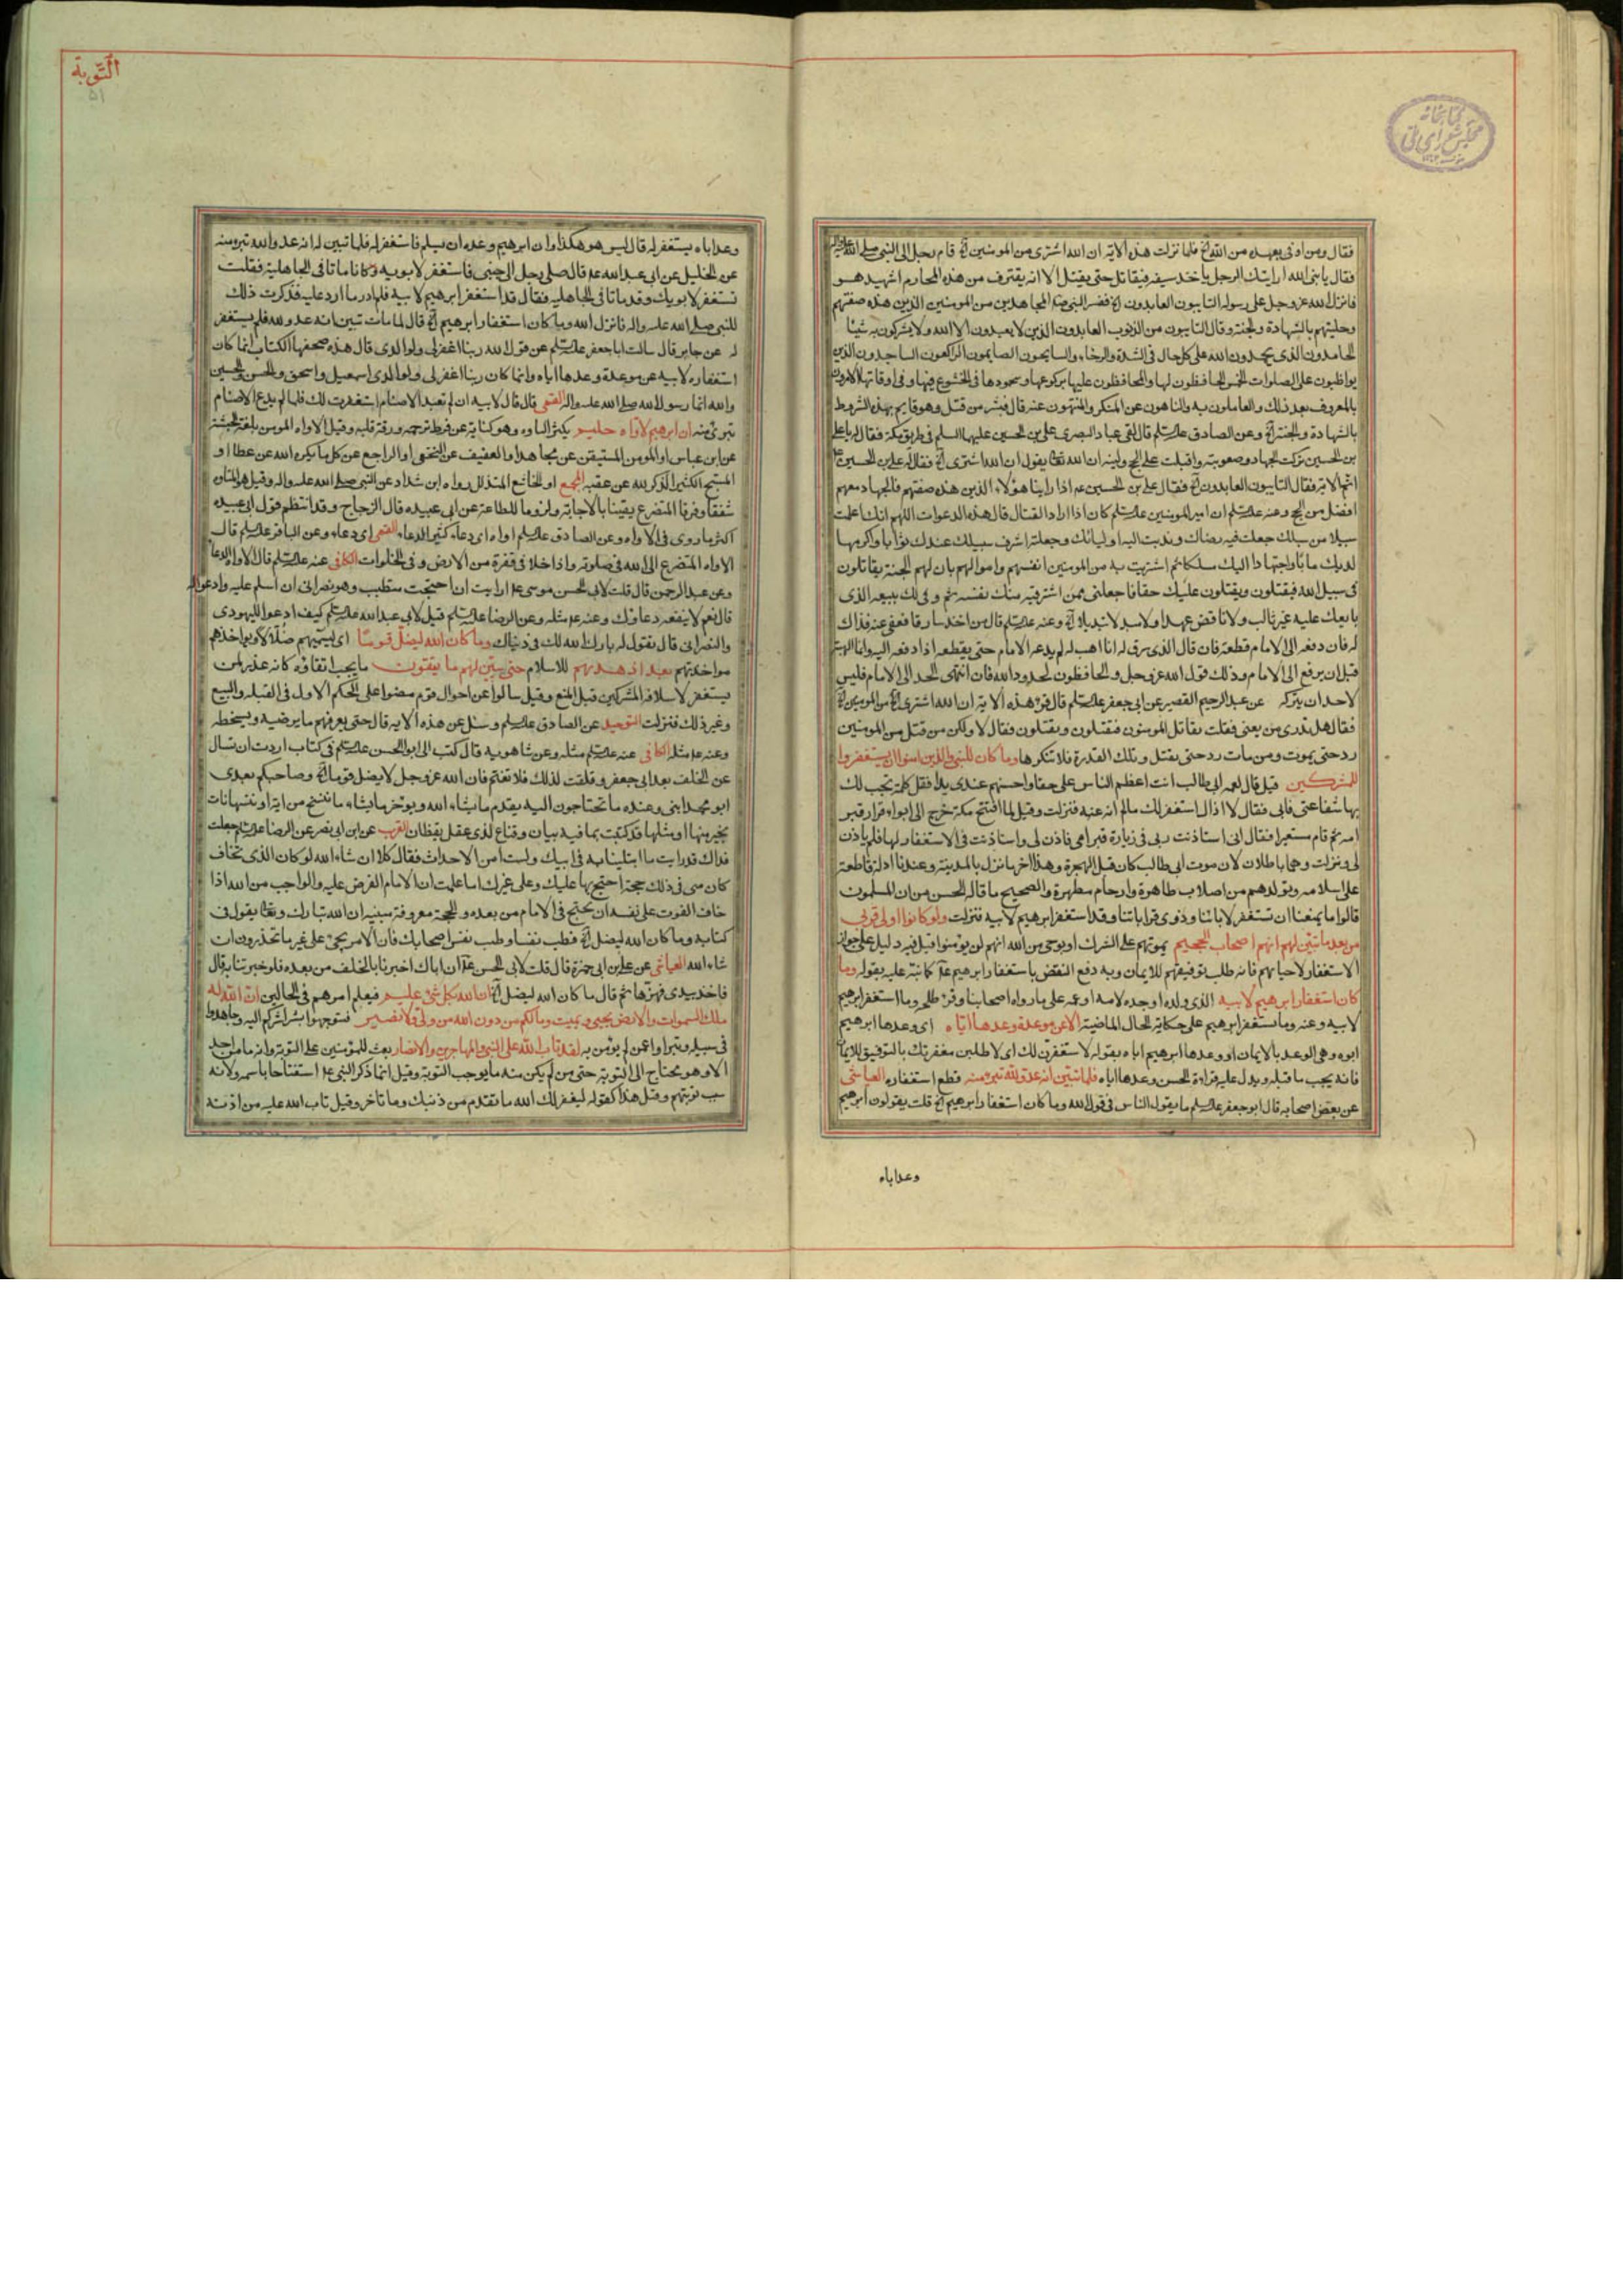 التوبة
۵۱
کتابخانه
مجلس شورای ملی
فقال ومن اوفى بعهده من الله الخ فلما نزلت هذه الآية ان الله اشترى من المومنين الخ قام رجل الى النبي صلى الله عليه واله
فقال يا نبي الله ارايتك الرجل ياخذ سيفه فيقاتل حتى يقتل الا انه يقترف من هذه المحارم اشهيد هو
فانزل الله عز وجل على رسوله التايبون العابدون الخ ففسر النبي المجاهدين من المومنين الذين هذه صفتهم
وحليتهم بالشهادة والجنة وقال التايبون من الذنوب العابدون الذين لا يعبدون الا الله ولا يشركون به شيئا
الحامدون الذى يحمدون الله على كل حال فى الشدة والرخاء والسايحون الصايمون الراكعون الساجدون الذين
يواظبون على الصلوات الخمس الحافظون لها والمحافظون عليها بركوعها وسجودها فى الخشوع فيها وفى اوقاتها الامرون
بالمعروف بعد ذلك والعاملون به والناهون عن المنكر والمنتهون عنه قال فبشر من قتل وهو قايم بهذه الشروط
بالشهادة والجنة الخ وعن الصادق عليه السلم قال لقى عباد البصرى على بن الحسين عليهما السلم فى طريق مكة فقال له يا على
بن الحسين تركت الجهاد وصعوبته واقبلت على الحج ولينه ان الله تعالى يقول ان الله اشترى الخ فقال له على بن الحسين
اتم الآية فقال التايبون العابدون الخ فقال على بن الحسين عم اذا راينا هؤلاء الذين هذه صفتهم فالجهاد معهم
افضل من الحج وعنه عليه السلم ان امير المومنين عليه السلم كان اذا اراد القتال قال هذه الدعوات اللهم انك اعلمت
سبيلا من سبلك جعلت فيه رضاك وندبت اليه اوليائك وجعلته اشرف سبيلك عندك ثوابا واكرمها
لديك مابا واحبها اليك مسلكا ثم اشتريت به من المومنين انفسهم واموالهم بان لهم الجنة يقاتلون
فى سبيل الله فيقتلون ويقتلون عليك حقا فاجعلنى ممن اشترى فيه منك نفسه ثم وفى لك ببيعه الذى
بايعك عليه غير ناكب ولا ناقض عهدا ولا مبدلا تبديلا الخ وعنه عليه السلم قال من اخذ سارقا فعفى عنه فذاك
له فان دفعه الى الامام قطعه فان قال الذى سرق له انا اهب له لم يدعه الامام حتى يقطعه اذا دفعه اليه وانما الهبة
قبل ان يرفع الى الامام وذلك قول الله عز وجل والحافظون لحدود الله فان انتهى الحد الى الامام فليس
لاحد ان يتركه عن عبد الرحيم القصير عن ابى جعفر عليه السلم قال قرء هذه الآية ان الله اشترى الخ من المومنين
فقال هل تدرى من يعنى فقلت يقاتل المومنون فيقتلون ويقتلون فقال لا ولكن من قتل من المومنين
رد حتى يموت ومن مات رد حتى يقتل وتلك القدرة فلا تنكرها وما كان للنبى والذين امنوا ان يستغفروا
للمشركين قيل قال لعمه ابى طالب انت اعظم الناس على حقا واحسنهم عندى يدا فقل كلمة تجب لك
بها شفاعتى فابى فقال لا ازال استغفر لك مالم انه عنه فنزلت وقيل لما افتتح مكة خرج الى ابواء فزار قبر
امه ثم قام مستعبرا فقال انى استاذنت ربى فى زيارة قبر امى فاذن لى واستاذنت فى الاستغفار لها فلم ياذن
لى ونزلت وهما باطلان لان موت ابى طالب كان قبل الهجرة وهذا اخر ما نزل بالمدينة وعندنا ادلة قاطعة
على اسلامه وتولدهم من اصلاب طاهرة وارحام مطهرة والصحيح ما قاله الحسن من ان المسلمون
قالوا ما يمنعنا ان نستغفر لابائنا وذوى قراباتنا وقد استغفر ابرهيم لابيه فنزلت ولو كانوا اولى قربى
من بعد ما تبين لهم انهم اصحاب الجحيم بموتهم على الشرك او بوحى من الله انهم لن يومنوا قبل فيه دليل على جواز
الاستغفار لاحيائهم فانه طلب توفيقهم للايمان وبه دفع النقض باستغفار ابرهيم عم كما نبه عليه بقوله وما
كان استغفار ابرهيم لابيه الذى ولده او جده لامه او عمه على ما رواه اصحابنا وقرء طلحه وما استغفر ابرهيم
لابيه وعنه وما يستغفر ابرهيم على حكاية الحال الماضية الا عن موعدة وعدها اياه اى وعدها ابرهيم
ابوه وهى الوعد بالايمان او وعدها ابرهيم اباه بقوله لاستغفرن لك اى لاطلبن مغفرتك بالتوفيق للايمان
فانه يجب ما قبله ويدل عليه قراءة الحسن وعدها اباه فلما تبين انه عدو لله تبرء منه قطع استغفاره العياشى
عن بعض اصحابه قال ابو جعفر عليه السلم ما يقول الناس فى قول الله وما كان استغفار ابرهيم الخ قلت يقولون ابرهيم
وعد اباه
وعد اباه يستغفر له قال ليس هو هكذا وان ابرهيم وعده ان يسلم فاستغفر له فلما تبين له انه عدو الله تبرء منه
عن الخليل عن ابى عبد الله عم قال صلى رجل الى جنبى فاستغفر لابويه وكانا ماتا فى الجاهلية فقلت
تستغفر لابويك وقد ماتا فى الجاهليه فقال قد استغفر ابرهيم لابيه فلم ادر ما ارد عليه فذكرت ذلك
للنبى صلى الله عليه واله فانزل الله وما كان استغفار ابرهيم الخ قال لما مات تبين انه عدو لله فلم يستغفر
له عن جابر قال سالت ابا جعفر عليه السلم عن قول الله ربنا اغفر لى ولوالدى قال هذه صحفها الكتاب انما كان
استغفاره لابيه عن موعدة وعدها اياه وانما كان ربنا اغفر لى ولوالدى اسمعيل واسحق والحسن والحسين
والله ابنا رسول الله صلى الله عليه واله القمى قال قال لابيه ان لم تعبد الاصنام استغفرت لك فلما لم يدع الاصنام
تبرئ منه ان ابرهيم لاواه حليم يكثر التاوه وهو كناية عن فرط ترحمه ورقة قلبه وقيل الاواه المومن بلغة الحبشة
عن ابن عباس او المومن المستيقن عن مجاهد او العفيف عن النخعى او الراجع عن كل ما يكره الله عن عطا او
المسبح الكثير الذكر لله عن عقبه المجمع او الخاشع المتذلل رواه ابن شداد عن النبى صلى الله عليه واله وقيل هو المتاوه
شفقا وفرقا المتضرع يقينا بالاجابة ولزوما للطاعة عن ابى عبيده قال الزجاج وقد انتظم قول ابى عبيده
اكثر ما روى فى الاواه وعن الصادق عليه السلم اواه اى دعاء كثير الدعاء القمى اى دعاء وعن الباقر عليه السلم قال
الاواه المتضرع الى الله فى صلوته واذا خلا فى قفرة من الارض وفى الخلوات الكافى عنه عليه السلم قال الاواه الدعا
وعن عبد الرحمن قال قلت لابى الحسن موسى عم ارايت ان احتجت متطبب وهو نصرانى ان اسلم عليه وادعو له
قال نعم لا ينفعه دعاؤك وعنه عم مثله وعن الرضا عليه السلم قيل لابى عبد الله عليه السلم كيف ادعو لليهودى
والنصرانى قال تقول له بارك الله لك فى دنياك وما كان الله ليضل قوما اى ليسميهم ضلالا او يواخذهم
مواخذتهم بعد اذ هديهم للاسلام حتى يبين لهم ما يتقون ما يجب اتقاؤه كانه عذر لمن
يستغفر لاسلافه المشركين قبل المنع وقيل سالوا عن احوال قوم مضوا على الحكم الاول فى القبله والبيع
وغير ذلك فنزلت التوحيد عن الصادق عليه السلم وسئل عن هذه الايه قال حتى يعرفهم ما يرضيه ويسخطه
وعنه عم مثله الكافى عنه عليه السلم مثله وعن شاهويه قال كتب الى ابو الحسن عليه السلم فى كتاب اردت ان تسال
عن الخلف بعد ابى جعفر وقلقت لذلك فلا تغتم فان الله عز وجل لا يضل قوما الخ وصاحبكم بعدى
ابو محمد ابنى وعنده ما تحتاجون اليه يقدم ما يشاء الله ويوخر ما يشاء ما ننسخ من اية او ننسها نات
بخير منها او مثلها قد كتبت بما فيه بيان وقناع لذى عقل يقظان القرب عن ابن ابى نصر عن الرضا عليه السلم جعلت
فداك قد رايت ما ابتلينا به فى ابيك ولست امن الاحداث فقال كلا ان شاء الله لو كان الذى تخاف
كان منى فى ذلك حجة احتج بها عليك وعلى غيرك اما علمت ان الامام الفرض عليه والواجب من الله اذا
خاف الفوت على نفسه ان يحتج فى الامام من بعده والحجة معروفة مبينه ان الله تبارك وتعالى يقول فى
كتابه وما كان الله ليضل الخ فطب نفسا وطب نفس اصحابك فان الامر يجئ على غير ما تحذرون ان
شاء الله العياشى عن على بن ابى حمزة قال قلت لابى الحسن عم ان اباك اخبرنا بالخلف من بعده فلو خبرتنا به قال
فاخذ بيدى فهزها ثم قال ما كان الله ليضل الخ ان الله بكل شئ عليم فيعلم امرهم فى الحالين ان الله له
ملك السموات والارض يحيى ويميت وما لكم من دون الله من ولى ولا نصير فتوجهوا بشراشركم اليه وجاهدوا
فى سبيله وتبراوا عمن لم يؤمن به لقد تاب الله على النبى والمهاجرين والانصار بعث للمؤمنين على التوبة وانه ما من احد
الا وهو محتاج الى التوبة حتى من لم يكن منه ما يوجب التوبة وقيل انما ذكر النبى عم استفتاحا باسمه ولانه
سبب توبتهم وقيل هذا كقوله ليغفر لك الله ما تقدم من ذنبك وما تاخر وقيل تاب الله عليه من اذنه